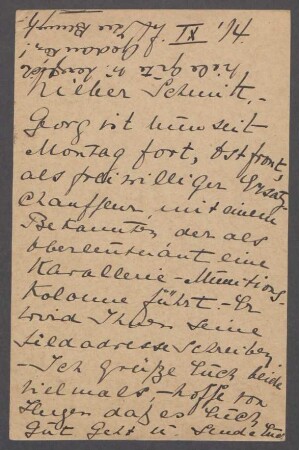 IX. 14.
Lieber Schmitt. –
Georg ist nun seit
Montag fort, Ostfront,
als freiwilliger Ersatz-
Chauffeur, mit einem
Bekannten der als
Oberleutnant eine
Kavallerie-Munitions-
Kolonne führt. – Er
wird Ihnen seine
Feldadresse schreiben.
– Ich grüße Euch beide
vielmals – hoffe von
Herzen daß es Euch
gut geht u. sende Euch
viele Grüße